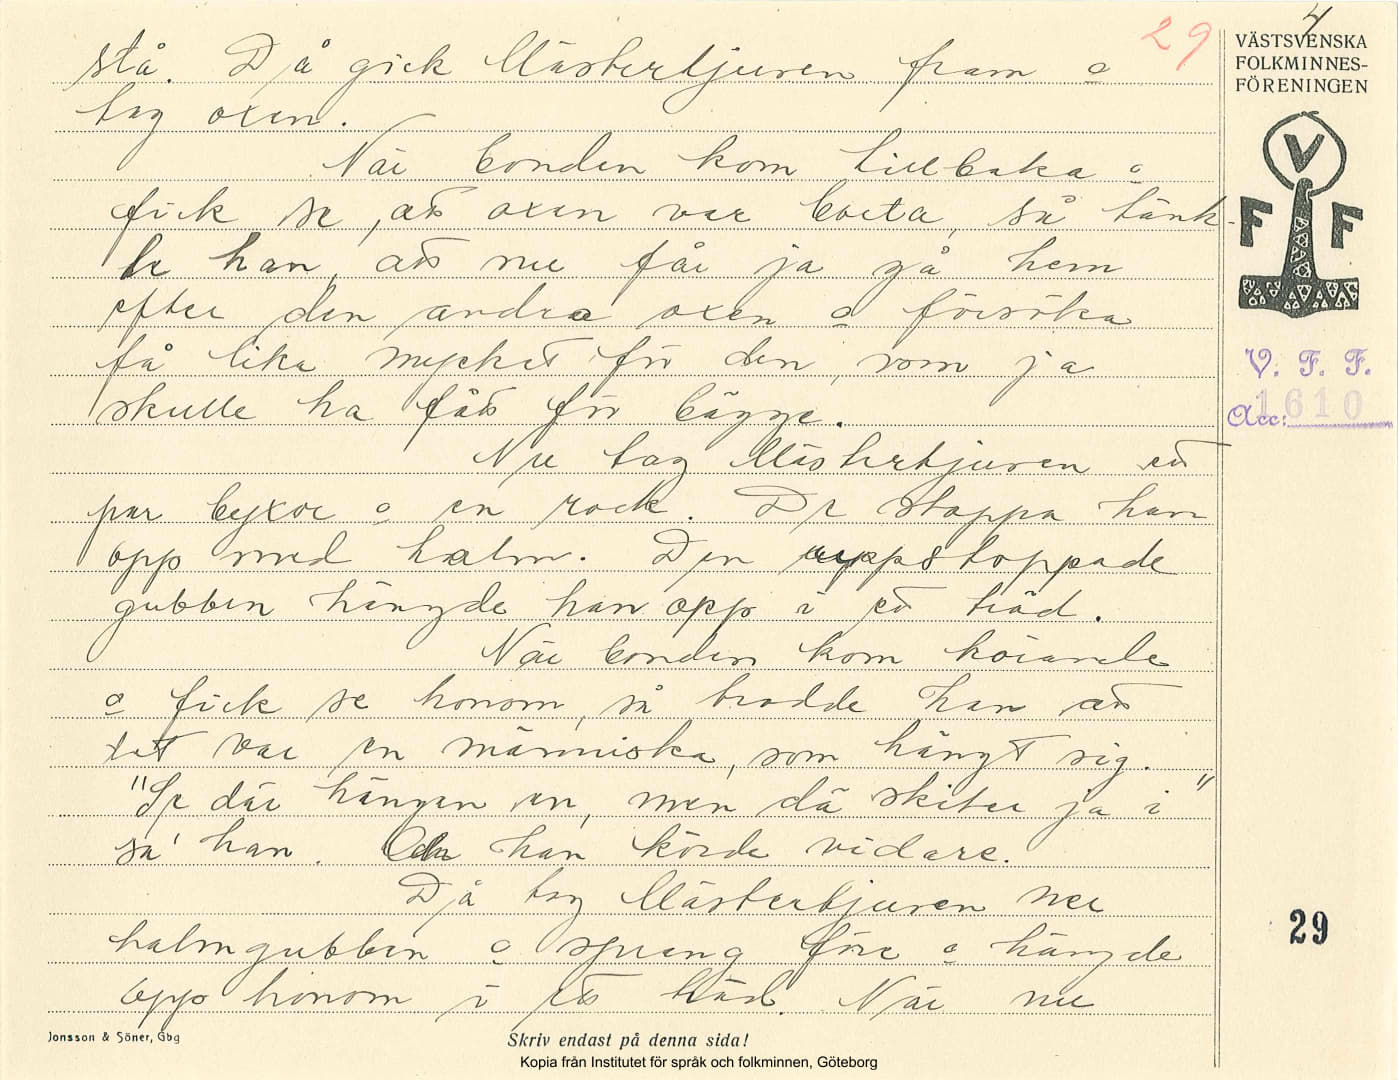 4
29
VÄSTSVENSKA
FOLKMINNES-
FÖRENINGEN
V
F F
V. F. F.
Acc: 1610
stå. Då gick Mästertjuven fram o
tog oxen.
När bonden kom tillbaka o
fick se, att oxen var borta, så tänk-
te han, att nu får ja gå hem
efter den andra oxen o försöka
få lika mycket för den, som ja
skulle ha fått för bägge.
Nu tog Mästertjuven ett
par byxor o en rock. De stoppa han
opp med halm. Den uppstoppade
gubben hängde han opp i ett träd.
När bonden kom körande
o fick se honom, så trodde han att
det var en människa, som hängt sig.
"Se där hänger en, men dä skiter ja i"
sa' han. Och han körde vidare.
Då tog Mästertjuven ner
halmgubben o sprang före o hängde
opp honom i ett träd. När nu
29
Jonsson & Söner, Gbg
Skriv endast på denna sida!
Kopia från Institutet för språk och folkminnen, Göteborg